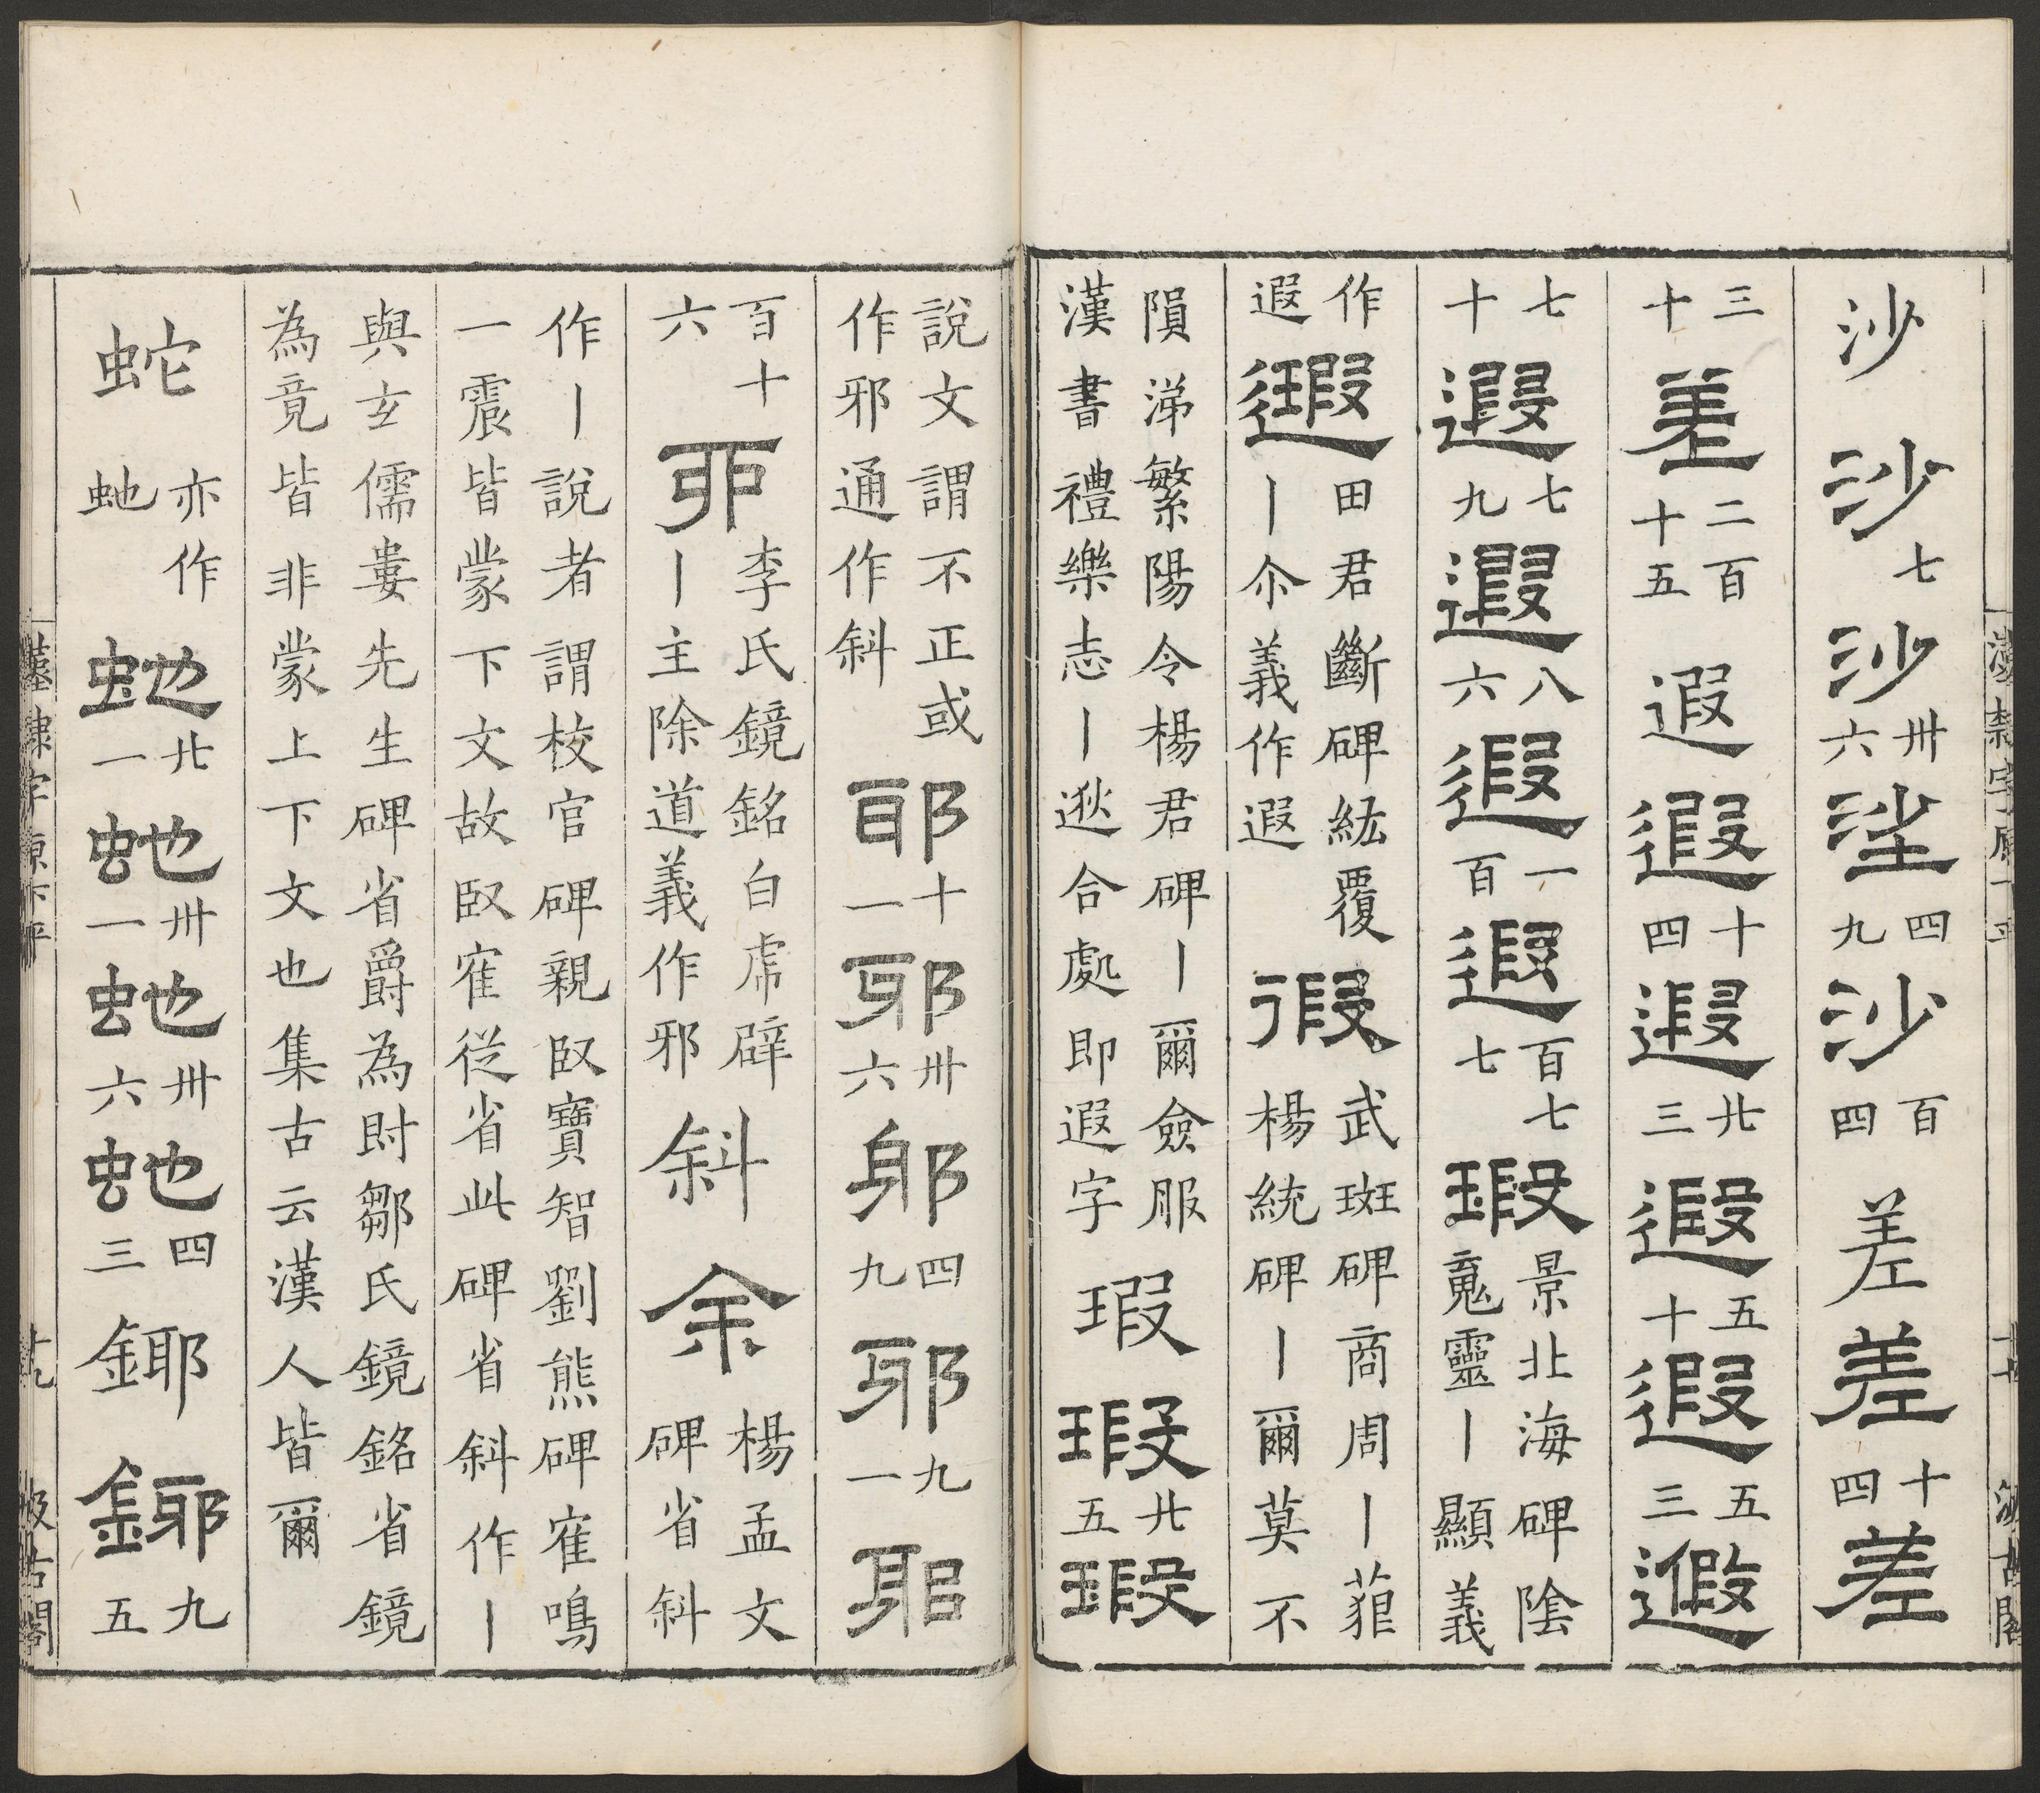 沙 沙 七 沙 卅六 𡋷 四九 沙 百四 差 差 十四 差
三十 差 二百十五 遐 遐 十四 遐 廿三 遐 五十 遐 五三 遐
七十 遐 七九 遐 八六 遐 一百 遐 百七七 瑕 景北海碑陰魂靈丨顯義
作遐 遐 田君斷碑紘覆丨尒義作遐 徦 武斑碑商周丨藐楊統碑丨爾莫不
隕涕繁陽令楊君碑丨爾僉服漢書禮樂志丨逖合處即遐字 瑕 瑕 廿五 瑕
說文謂不正或作邪通作斜 耶 十一 邪 卅六 䣍 四九 邪 九一 耶
百十六 邪 李氏鏡銘白虎辟丨主除道義作邪 斜 余 楊孟文碑省斜
作丨說者謂校官碑親臤寶智劉熊碑寉鳴一震皆蒙下文故臤寉從省此碑省斜作丨
與玄儒婁先生碑省爵為尌鄒氏鏡銘省鏡為竟皆非蒙上下文也集古云漢人皆爾
蛇 亦作虵 虵 廿一 虵 卅一 虵 卅六 虵 四三 鎁 鎁 九五
漢隸字原下平
十九
汲古閣